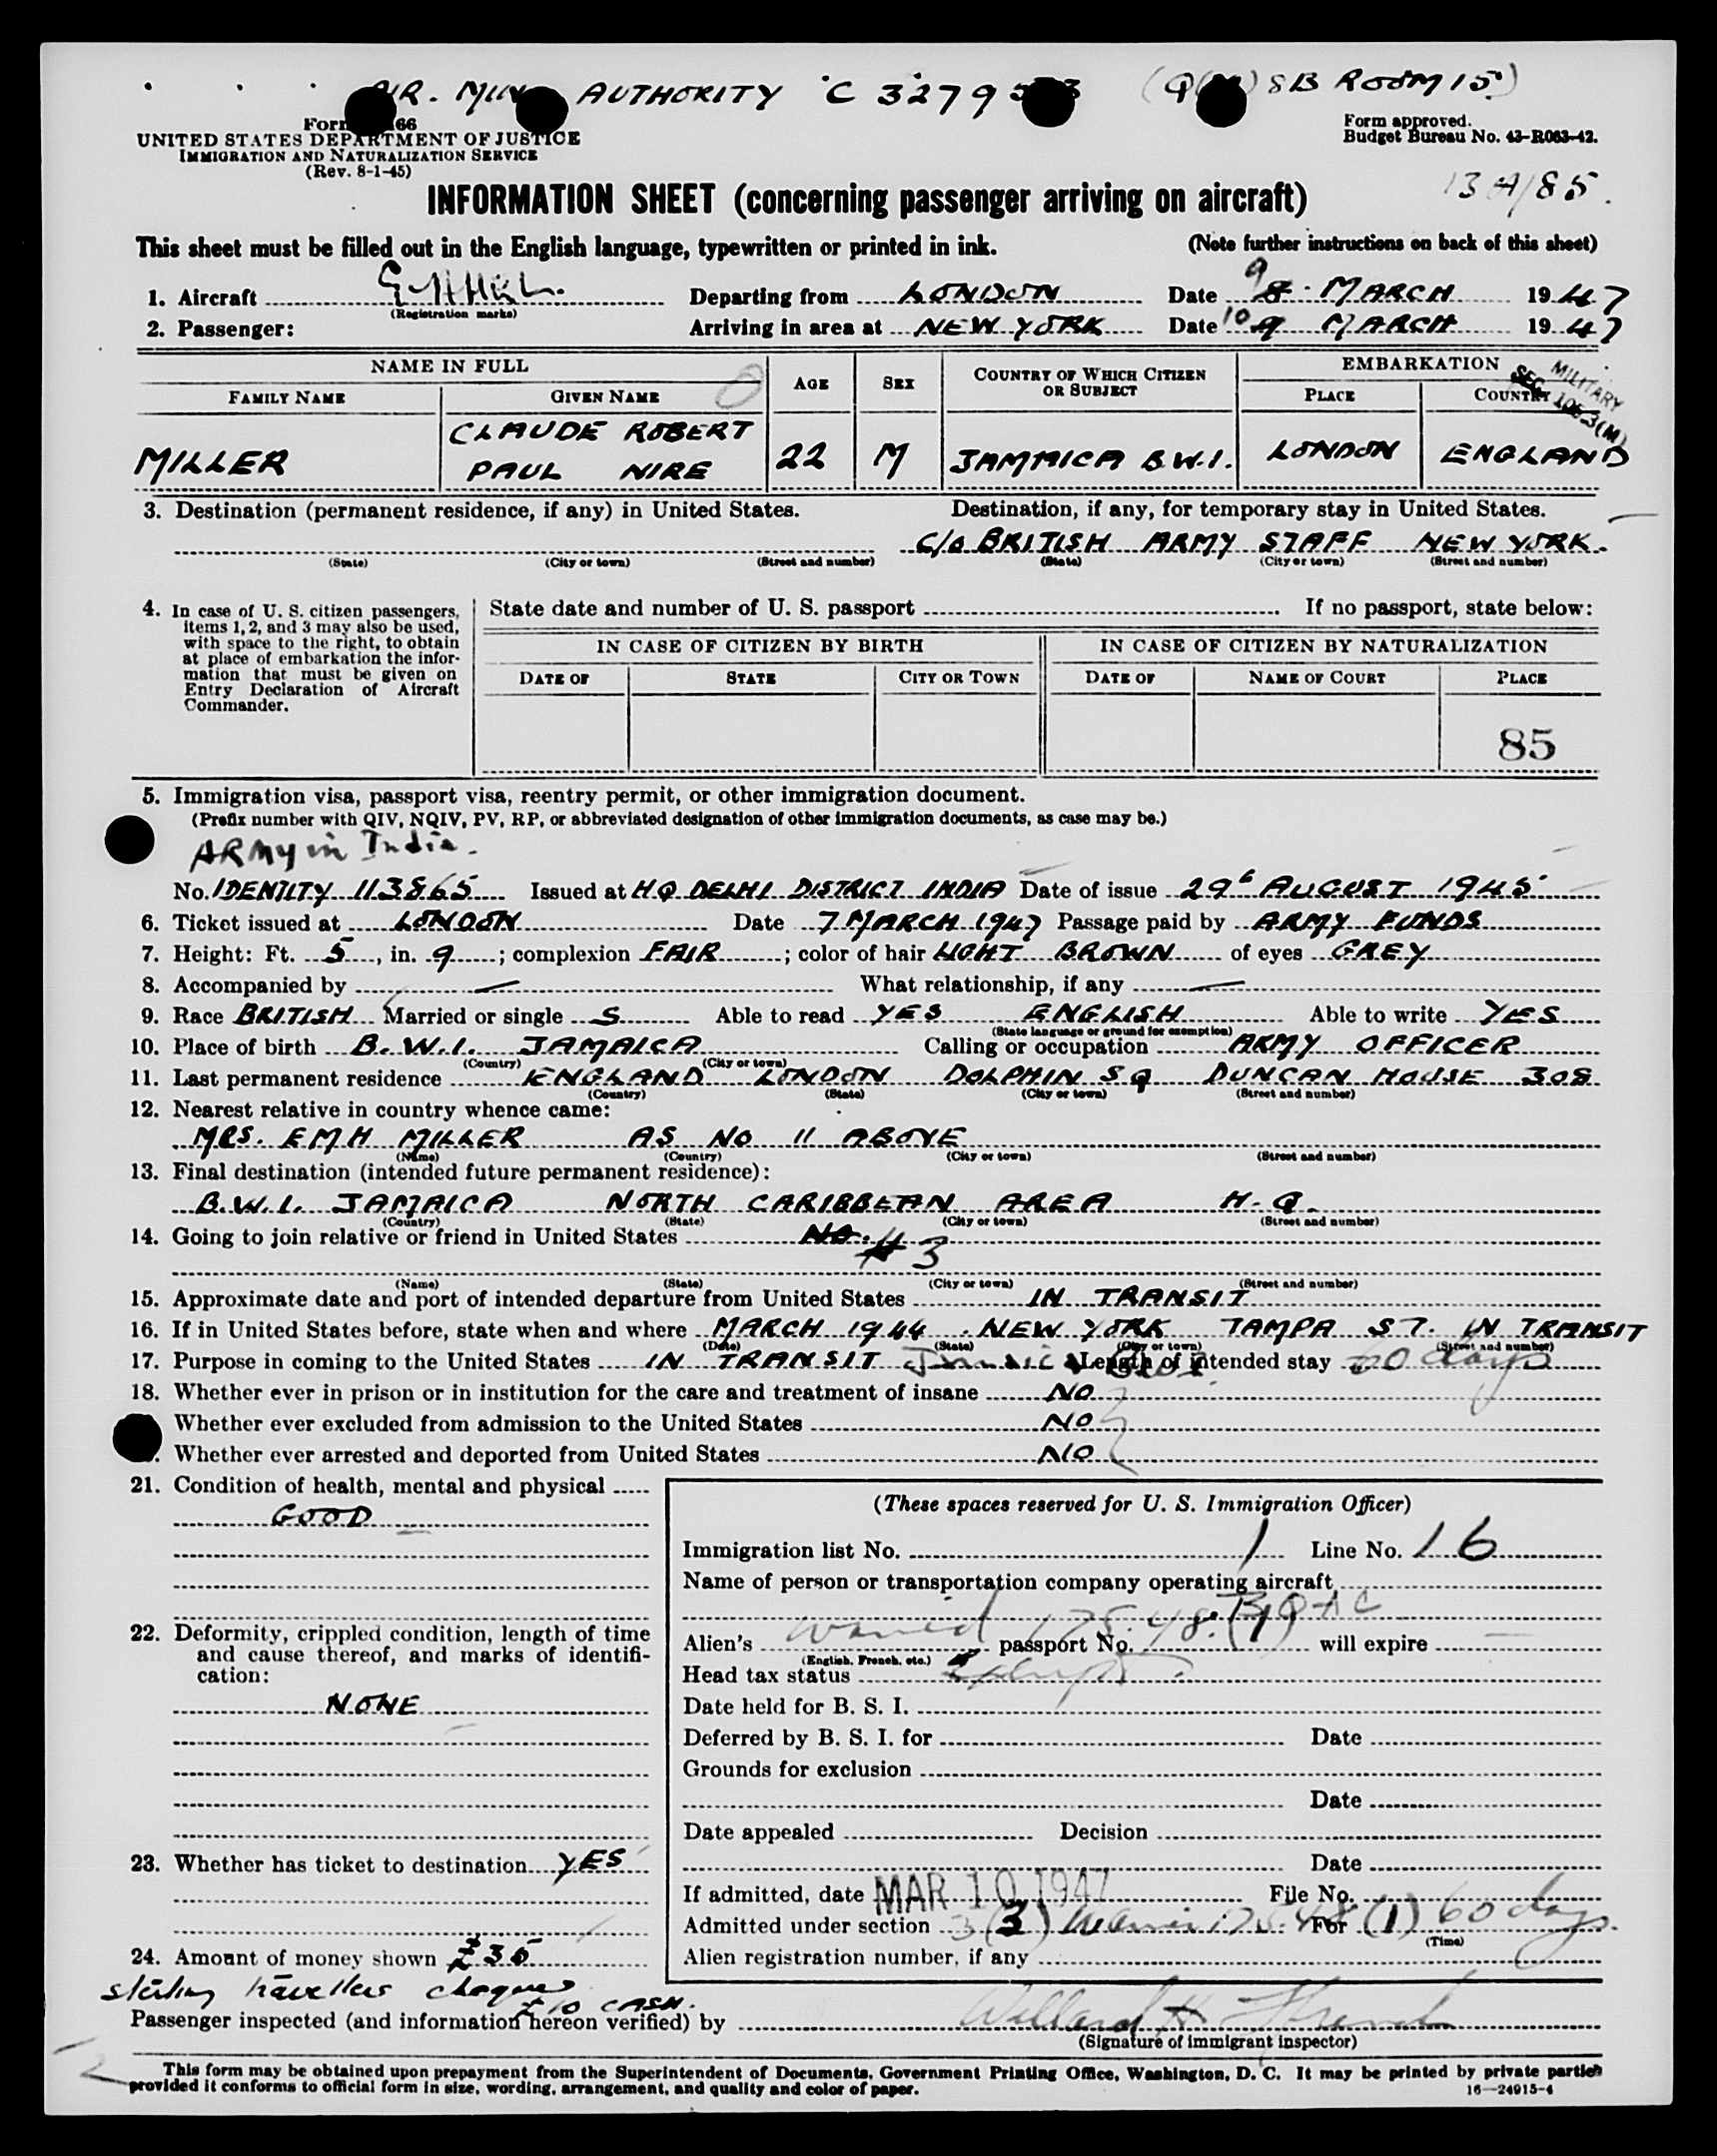 AIR. MIN AUTHORITY C 3279 8B ROOM 15)
Form 66
UNITED STATES DEPARTMENT OF JUSTICE
IMMIGRATION AND NATURALIZATION SERVICE
(Rev. 8-1-45)
Form approved.
Budget Bureau No. 43-R063-42.
13 A/85.
INFORMATION SHEET (concerning passenger arriving on aircraft)
This sheet must be filled out in the English language, typewritten or printed in ink. (Note further instructions on back of this sheet)
1. Aircraft Departing from LONDON Date 9 8 MARCH 1947
(Registration marks)
2. Passenger: Arriving in area at NEW YORK Date 10 9 MARCH 1947
NAME IN FULL AGE SEX COUNTRY OF WHICH CITIZEN OR SUBJECT EMBARKATION
FAMILY NAME GIVEN NAME PLACE COUNTRY
MILITARY
SEC 1063(M)
MILLER CLAUDE ROBERT PAUL NIRE 22 M JAMAICA B.W.I. LONDON ENGLAND
3. Destination (permanent residence, if any) in United States. Destination, if any, for temporary stay in United States.
C/O BRITISH ARMY STAFF NEW YORK.
(State) (City or town) (Street and number) (State) (City or town) (Street and number)
4. In case of U. S. citizen passengers, items 1, 2, and 3 may also be used, with space to the right, to obtain at place of embarkation the information that must be given on Entry Declaration of Aircraft Commander.
State date and number of U. S. passport If no passport, state below:
IN CASE OF CITIZEN BY BIRTH IN CASE OF CITIZEN BY NATURALIZATION
DATE OF STATE CITY OR TOWN DATE OF NAME OF COURT PLACE
85
5. Immigration visa, passport visa, reentry permit, or other immigration document.
(Prefix number with QIV, NQIV, PV, RP, or abbreviated designation of other immigration documents, as case may be.)
ARMY in India.
No. IDENTITY 113865 Issued at H.Q DELHI DISTRICT INDIA Date of issue 29 AUGUST 1945
6. Ticket issued at LONDON Date 7 MARCH 1947 Passage paid by ARMY FUNDS
7. Height: Ft. 5, in. 9; complexion FAIR; color of hair LIGHT BROWN of eyes GREY
8. Accompanied by — What relationship, if any —
9. Race BRITISH Married or single S Able to read YES ENGLISH Able to write YES
(State language or ground for exemption)
10. Place of birth B.W.I. JAMAICA Calling or occupation ARMY OFFICER
(Country) (City or town)
11. Last permanent residence ENGLAND LONDON DOLPHIN SQ DUNCAN HOUSE 308
(Country) (State) (City or town) (Street and number)
12. Nearest relative in country whence came:
MRS. E M H MILLER AS NO 11 ABOVE
(Name) (Country) (City or town) (Street and number)
13. Final destination (intended future permanent residence):
B.W.I. JAMAICA NORTH CARIBBEAN AREA H.Q.
(Country) (State) (City or town) (Street and number)
14. Going to join relative or friend in United States NO.
# 3
(Name) (State) (City or town) (Street and number)
15. Approximate date and port of intended departure from United States IN TRANSIT
16. If in United States before, state when and where MARCH 1944. NEW YORK TAMPA ST. IN TRANSIT
(Date) (State) (City or town) (Street and number)
17. Purpose in coming to the United States IN TRANSIT Jamaica BWI. Length of intended stay 60 days
18. Whether ever in prison or in institution for the care and treatment of insane NO
Whether ever excluded from admission to the United States NO
Whether ever arrested and deported from United States NO
21. Condition of health, mental and physical
GOOD
22. Deformity, crippled condition, length of time and cause thereof, and marks of identification:
NONE
23. Whether has ticket to destination YES
24. Amount of money shown £35
sterling travellers cheques
£10 CASH.
(These spaces reserved for U. S. Immigration Officer)
Immigration list No. 1 Line No. 16
Name of person or transportation company operating aircraft
BOAC
Alien's waived 175.48.(1) passport No. will expire —
(English, French, etc.)
Head tax status
Date held for B. S. I.
Deferred by B. S. I. for Date
Grounds for exclusion
Date
Date appealed Decision
Date
If admitted, date MAR 10 1947 File No.
Admitted under section 3(3) 175.48 For (1) 60 days.
(Time)
Alien registration number, if any
Passenger inspected (and information hereon verified) by Willard H
(Signature of immigrant inspector)
This form may be obtained upon prepayment from the Superintendent of Documents, Government Printing Office, Washington, D. C. It may be printed by private parties
provided it conforms to official form in size, wording, arrangement, and quality and color of paper.
16—24915-4